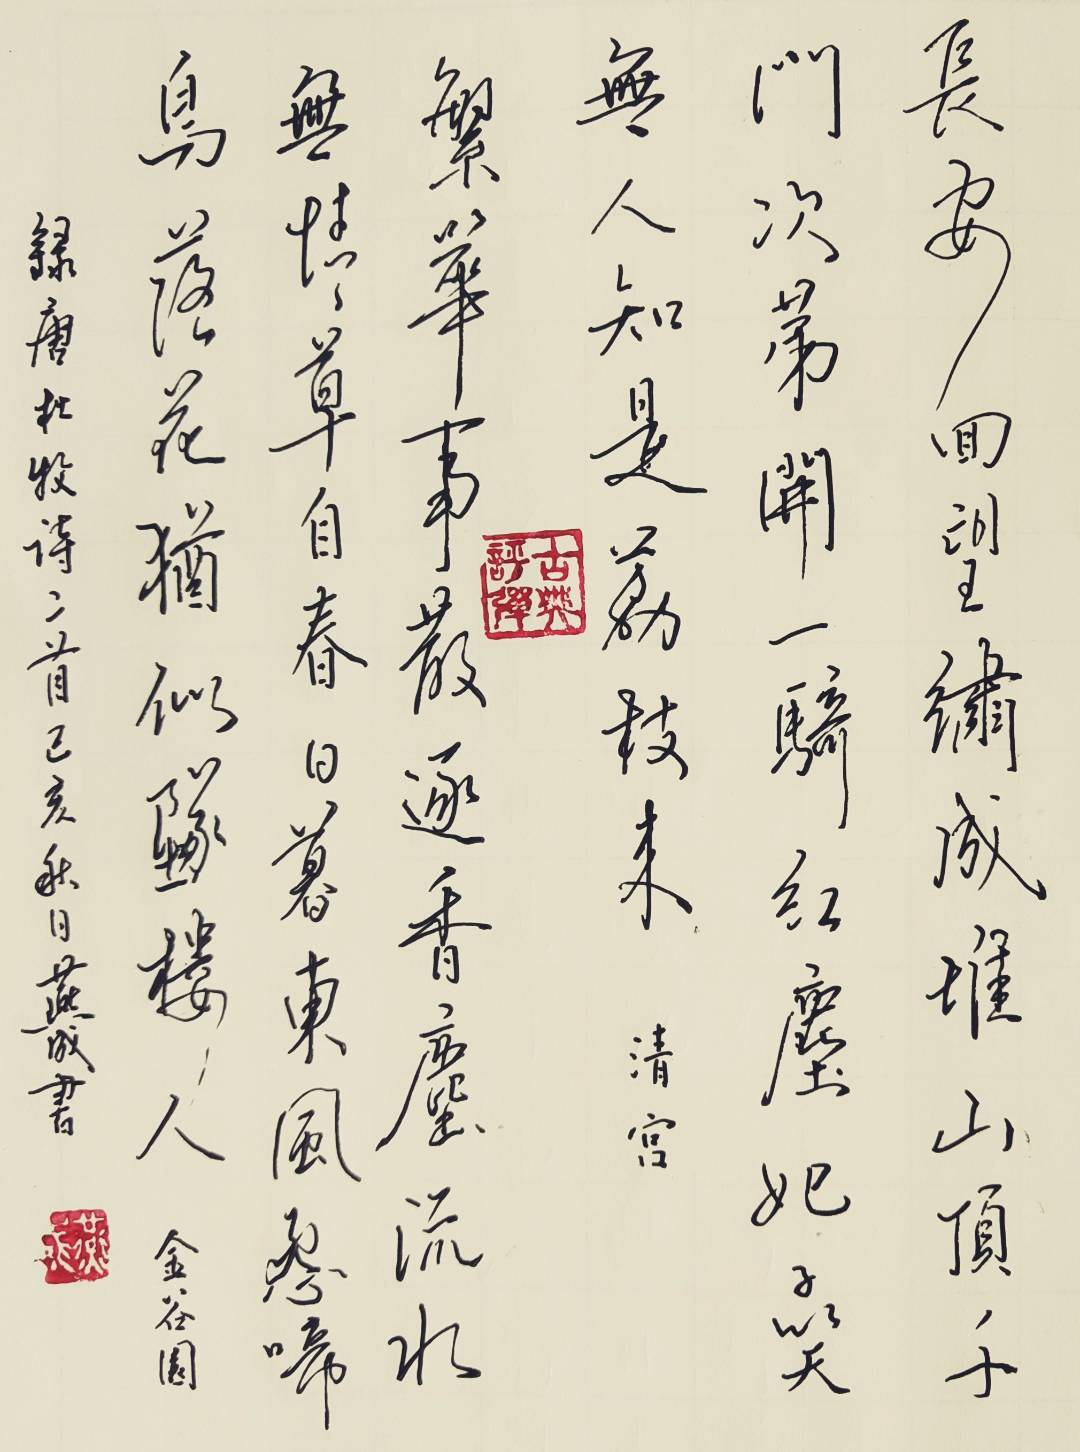 長安回望繡成堆山頂千
門次第開一騎紅塵妃子笑
無人知是荔枝来
清宮
繁華事散逐香塵流水
無情草自春日暮東風怨啼
鳥落花猶似墜樓人
金谷園
録唐杜牧诗二首己亥秋日燕成書
古典
評彈